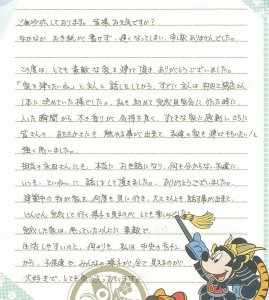 ご無沙汰しております。皆様お元気ですか?
なかなかお手紙が書けず、遅くなってしまい、申し訳ありませんでした。
この度は、とても素敵な家を建てて頂き、ありがとうございました。
「家を建てたいね」と主人と話をしてから、すでに主人は村田工務店さん
1本に決めていた様でした。私も初めて完成見学会に行った時に
入った瞬間から木の香りが気持ち良く、すてきな家に感動しさらに
皆さんの、あたたかさにも触れる事が出来て、私達の家も建ててもらいたい!と
強く思いました。
担当の永田さんにも、本当にお世話になり、何も分からない私達に
いつも、ていねいに話をして頂きました。ありがとうございました。
建築中の我が家を、何度も見に行き、大工さんとも話す事が出来て、
どんどん完成して行く様子を見るのがとても楽しみでした。
完成した家は、思っていた以上に素敵で、
生活しやすいのと、何よりも、私は中央のキッチン
から、子供達や、みんなの様子が全て見えるのが
大好きで、とても気に入っています。